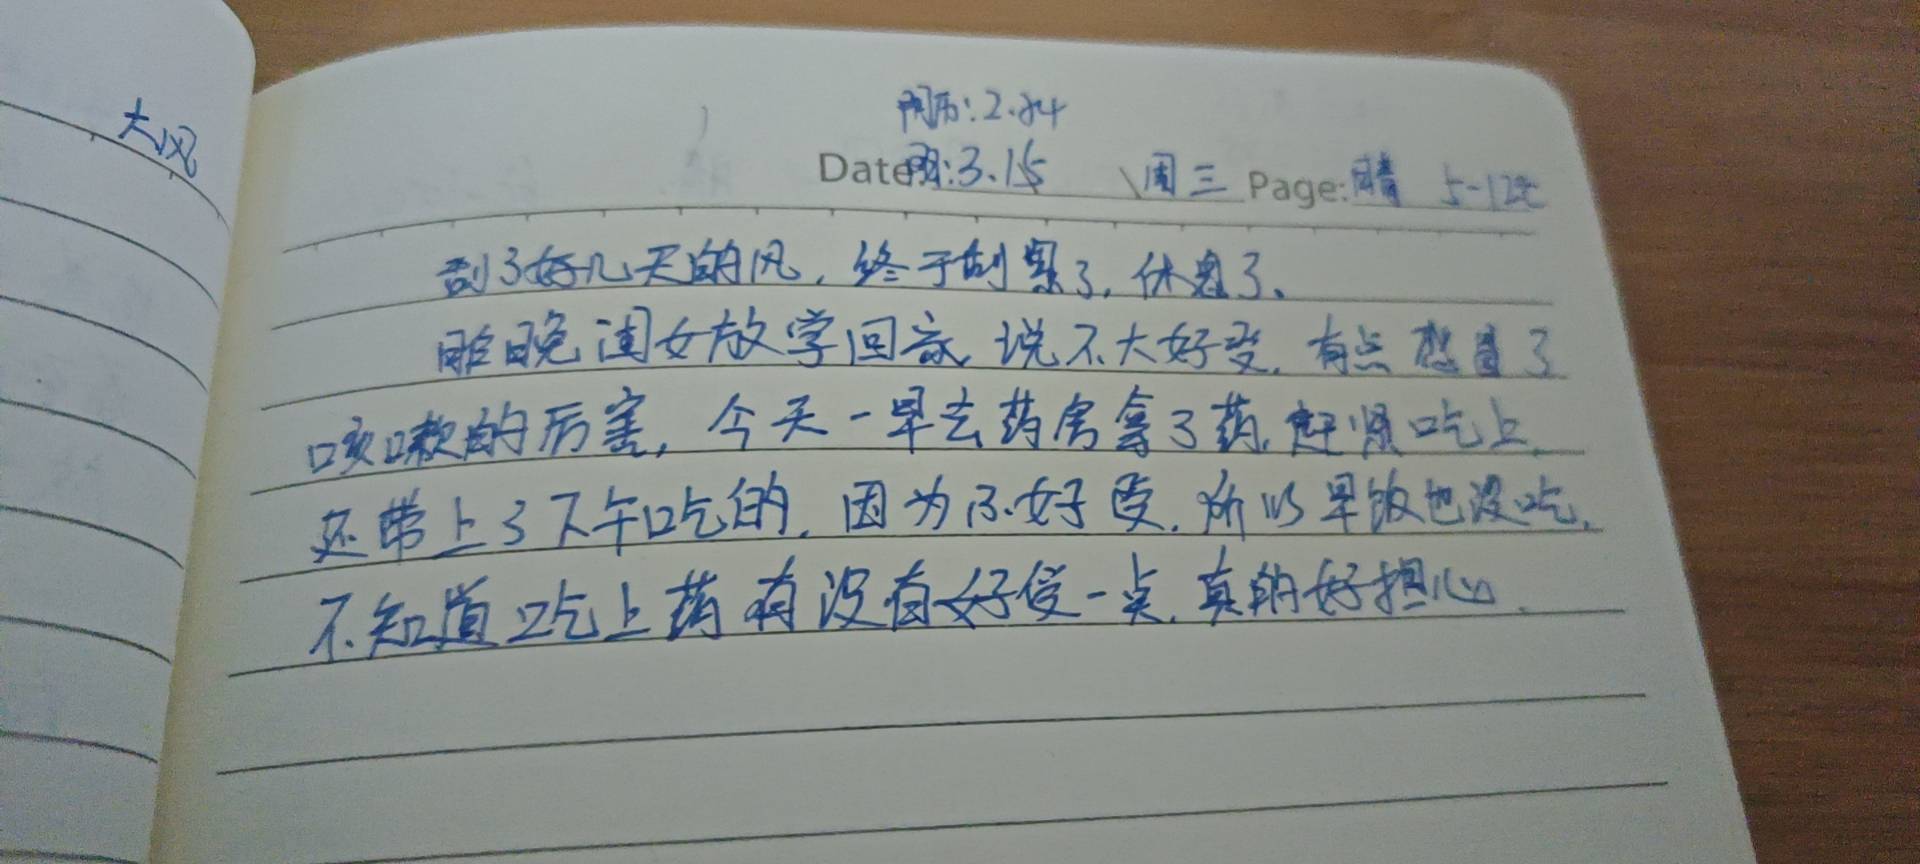 大风
阴历:2.24
Date 阳:3.15 周三 Page: 晴 5-12℃
刮了好几天的风,终于刮累了,休息了。
昨晚闺女放学回家,说不大好受,有点感冒了
咳嗽的厉害,今天一早去药房拿了药,赶紧吃上
还带上了下午吃的,因为不好受,所以早饭也没吃,
不知道吃上药有没有好受一点,真的好担心。